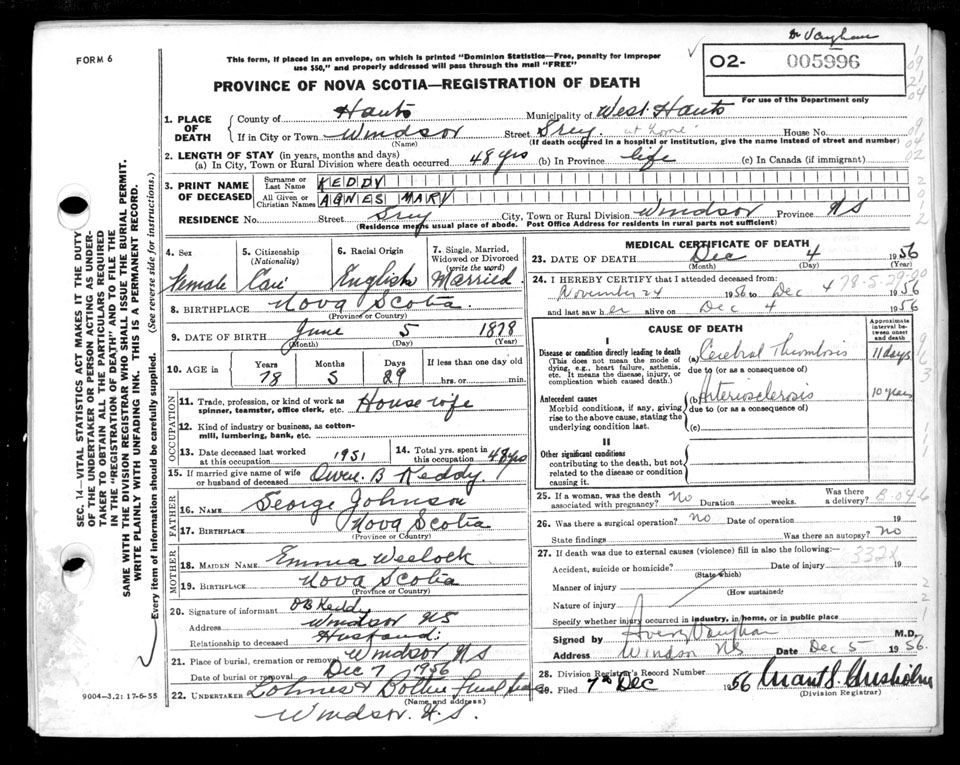 Dr Vaughan
FORM 6
This form, if placed in an envelope, on which is printed "Dominion Statistics—Free, penalty for improper
use $50," and properly addressed will pass through the mail "FREE"
02- 005996
For use of the Department only
PROVINCE OF NOVA SCOTIA—REGISTRATION OF DEATH
1. PLACE OF DEATH
County of Hants Municipality of West Hants
If in City or Town Windsor Street Grey. at home House No.
(Name) (If death occurred in a hospital or institution, give the name instead of street and number)
2. LENGTH OF STAY (in years, months and days)
(a) In City, Town or Rural Division where death occurred 48 yrs (b) In Province life (c) In Canada (if immigrant)
3. PRINT NAME OF DECEASED
Surname or Last Name KEDDY
All Given or Christian Names AGNES MARY
RESIDENCE No. Street Grey City, Town or Rural Division Windsor Province NS
(Residence means usual place of abode. Post Office Address for residents in rural parts not sufficient)
4. Sex Female
5. Citizenship (Nationality) Can
6. Racial Origin English
7. Single, Married, Widowed or Divorced (write the word) Married
8. BIRTHPLACE Nova Scotia.
(Province or Country)
9. DATE OF BIRTH June 5 1878
(Month) (Day) (Year)
10. AGE in Years 78 Months 5 Days 29 If less than one day old
hrs. or min.
OCCUPATION
11. Trade, profession, or kind of work as spinner, teamster, office clerk, etc. Housewife
12. Kind of industry or business, as cotton-mill, lumbering, bank, etc.
13. Date deceased last worked at this occupation 1951
14. Total yrs. spent in this occupation 48 yrs
15. If married give name of wife or husband of deceased Owen B Keddy.
FATHER
16. NAME George Johnson
17. BIRTHPLACE Nova Scotia
(Province or Country)
MOTHER
18. MAIDEN NAME Emma Weelock
19. BIRTHPLACE Nova Scotia
(Province or Country)
20. Signature of informant OB Keddy
Address Windsor NS
Relationship to deceased Husband.
21. Place of burial, cremation or removal Windsor NS
Date of burial or removal Dec 7 1956
22. UNDERTAKER
(Name and address)
Windsor. N.S.
9004-3,2: 17-6-55
SEC. 14—VITAL STATISTICS ACT MAKES IT THE DUTY
OF THE UNDERTAKER OR PERSON ACTING AS UNDER-
TAKER TO OBTAIN ALL THE PARTICULARS REQUIRED
IN THE "REGISTRATION OF DEATH" AND TO FILE THE
SAME WITH THE DIVISION REGISTRAR WHO SHALL ISSUE THE BURIAL PERMIT.
WRITE PLAINLY WITH UNFADING INK. THIS IS A PERMANENT RECORD.
Every item of information should be carefully supplied. (See reverse side for instructions.)
MEDICAL CERTIFICATE OF DEATH
23. DATE OF DEATH Dec 4 1956
(Month) (Day) (Year)
24. I HEREBY CERTIFY that I attended deceased from:
November 24 1956 to Dec 4 1956
and last saw her alive on Dec 4 1956
CAUSE OF DEATH
Approximate interval between onset and death
I
Disease or condition directly leading to death
(This does not mean the mode of dying, e.g., heart failure, asthenia, etc. It means the disease, injury, or complication which caused death.)
(a) Cerebral Thrombosis 11 days
due to (or as a consequence of)
Antecedent causes
Morbid conditions, if any, giving rise to the above cause, stating the underlying condition last.
(b) Arteriosclerosis 10 years
due to (or as a consequence of)
(c)
II
Other significant conditions
contributing to the death, but not related to the disease or condition causing it.
25. If a woman, was the death associated with pregnancy? No Duration weeks. Was there a delivery?
26. Was there a surgical operation? no Date of operation 19
State findings Was there an autopsy? No
27. If death was due to external causes (violence) fill in also the following:—
332X
Accident, suicide or homicide? Date of injury 19
(State which)
Manner of injury
(How sustained)
Nature of injury
Specify whether injury occurred in industry, in home, or in public place
Signed by Avery Vaughan M.D.
Address Windsor NS Date Dec 5 1956.
28. Division Registrar's Record Number
29. Filed 7th Dec 1956 Grant S. Chisholm
(Division Registrar)